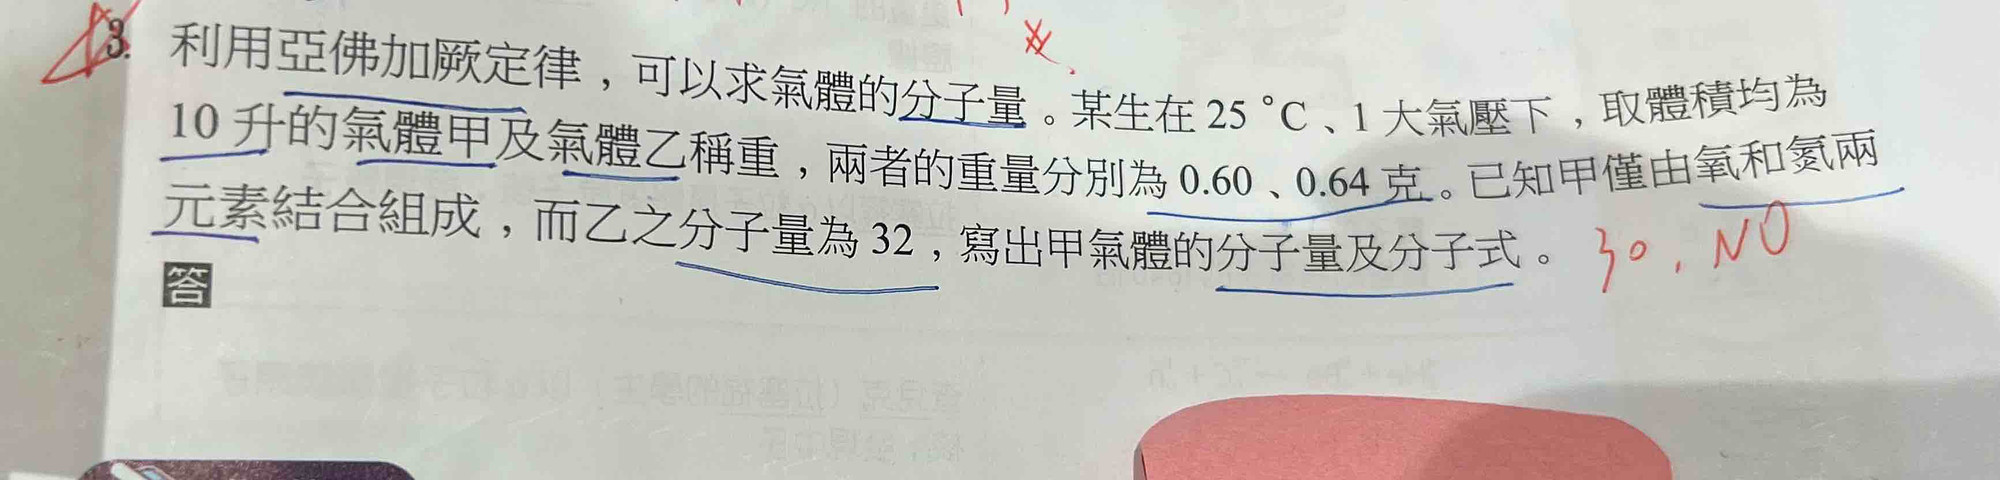 3. 利用亞佛加厥定律，可以求氣體的分子量。某生在 25 °C、1 大氣壓下，取體積均為
10 升的氣體甲及氣體乙稱重，兩者的重量分別為 0.60、0.64 克。已知甲僅由氧和氮兩
元素結合組成，而乙之分子量為 32，寫出甲氣體的分子量及分子式。 30, NO
答